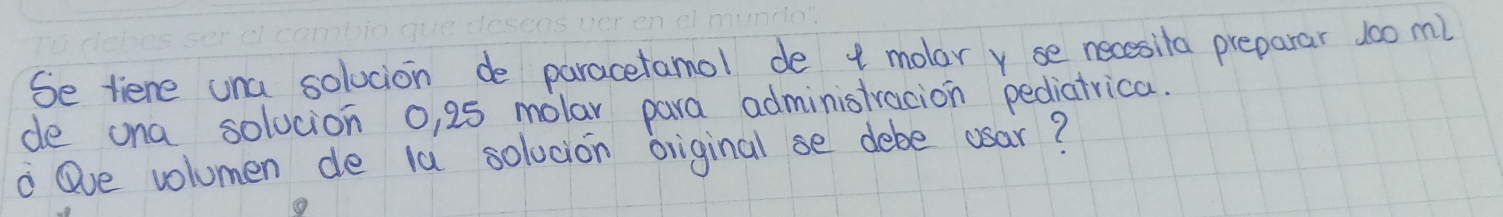 Tú debes ser el cambio que deseas ver en el mundo.
Se tiene una solución de paracetamol de 1 molar y se necesita preparar 100 ml
de una solución 0,25 molar para administración pediatrica.
¿ Que volumen de la solución original se debe usar?